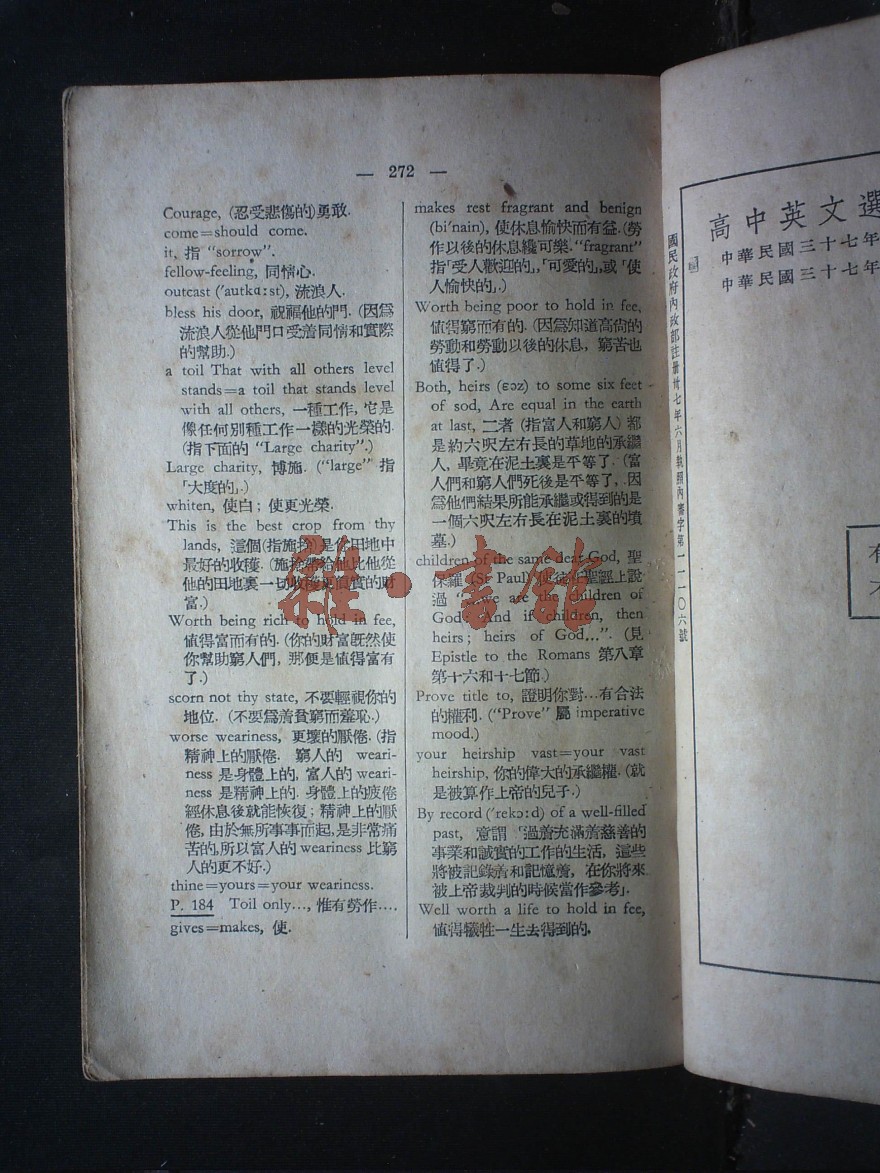 — 272 —
Courage, (忍受悲傷的)勇敢.
come=should come.
it, 指 "sorrow".
fellow-feeling, 同情心.
outcast ('autkɑːst), 流浪人.
bless his door, 祝福他的門. (因爲
流浪人從他門口受着同情和實際
的幫助.)
a toil That with all others level
stands=a toil that stands level
with all others, 一種工作, 它是
像任何別種工作一樣的光榮的.
(指下面的 "Large charity".)
Large charity, 博施. ("large" 指
「大度的」.)
whiten, 使白; 使更光榮.
This is the best crop from thy
lands, 這個(指施捨)是你田地中
最好的收穫. (施捨給他比他從
他的田地裏一切收穫更眞實的財
富.)
Worth being rich to hold in fee,
値得富而有的. (你的財富旣然使
你幫助窮人們, 那便是値得富有
了.)
scorn not thy state, 不要輕視你的
地位. (不要爲着貧窮而羞恥.)
worse weariness, 更壞的厭倦. (指
精神上的厭倦. 窮人的 weari-
ness 是身體上的, 富人的 weari-
ness 是精神上的. 身體上的疲倦
經休息後就能恢復; 精神上的厭
倦, 由於無所事事而起, 是非常痛
苦的, 所以富人的 weariness 比窮
人的更不好.)
thine=yours=your weariness.
P. 184 Toil only..., 惟有勞作....
gives=makes, 使.
makes rest fragrant and benign
(bi'nain), 使休息愉快而有益. (勞
作以後的休息纔可樂. "fragrant"
指「受人歡迎的」,「可愛的」,或「使
人愉快的」.)
Worth being poor to hold in fee,
値得窮而有的. (因爲知道高尙的
勞動和勞動以後的休息, 窮苦也
値得了.)
Both, heirs (ɛɔz) to some six feet
of sod, Are equal in the earth
at last, 二者 (指富人和窮人) 都
是約六呎左右長的草地的承繼
人, 畢竟在泥土裏是平等了. (富
人們和窮人們死後是平等了, 因
爲他們結果所能承繼或得到的是
一個六呎左右長在泥土裏的墳
墓.)
children of the same dear God, 聖
保羅 (St Paul) 使徒在聖經上說
過 "...we are the children of
God: And if children, then
heirs; heirs of God,...". (見
Epistle to the Romans 第八章
第十六和十七節.)
Prove title to, 證明你對…有合法
的權利. ("Prove" 屬 imperative
mood.)
your heirship vast=your vast
heirship, 你的偉大的承繼權. (就
是被算作上帝的兒子.)
By record ('rekɔːd) of a well-filled
past, 意謂「過着充滿着慈善的
事業和誠實的工作的生活, 這些
將被記錄着和記憶着, 在你將來
被上帝裁判的時候當作參考」.
Well worth a life to hold in fee,
値得犧牲一生去得到的.
雜·書館
國民政府內政部註册卅七年六月執照內審字第一一一〇六號
高中英文選
中華民國三十七年
中華民國三十七年